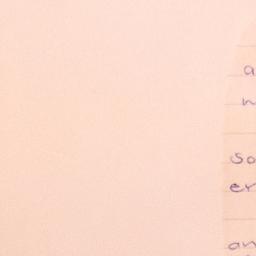 a
n
so
er
an